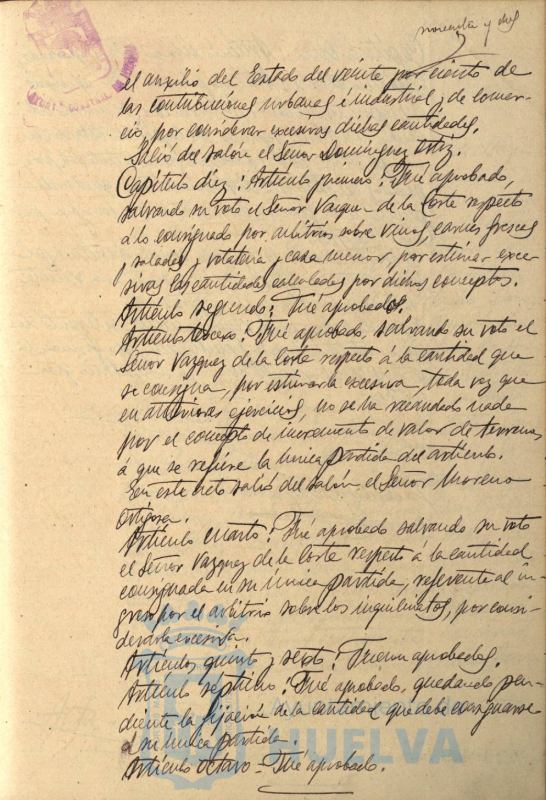 noventa y dos
el auxilio del Estado del veinte por ciento de
las contribuciones urbanas é industrial y de comer-
cio, por considerar excesivas dichas cantidades.
Salió del salón el Señor Domínguez Ortiz.
Capítulo diez: Artículo primero: Fué aprobado,
salvando su voto el Señor Vazquez de la Corte respecto
á lo consignado por arbitrios sobre vinos, carnes frescas
y saladas y volatería y caza menor, por estimar exce-
sivas las cantidades calculadas por dichos conceptos.
Artículo segundo: Fué aprobado.
Artículo tercero: Fué aprobado, salvando su voto el
Señor Vazquez de la Corte respecto á la cantidad que
se consigna, por estimarla excesiva, toda vez que
en anteriores ejercicios, no se ha recaudado nada
por el concepto de incremento de valor de terrenos
á que se refiere la única partida del artículo.
En este acto salió del salón el Señor Moreno
Ortigosa.
Artículo cuarto: Fué aprobado salvando su voto
el Señor Vazquez de la Corte respecto á la cantidad
consignada en su única partida, referente al in-
greso por el arbitrio sobre los inquilinatos, por consi-
derarla excesiva.
Artículos quinto y sexto: Fueron aprobados.
Artículo septimo: Fué aprobado, quedando pen-
diente la fijación de la cantidad que debe consignarse
á su única partida.
HUELVA
Artículo octavo - Fué aprobado.